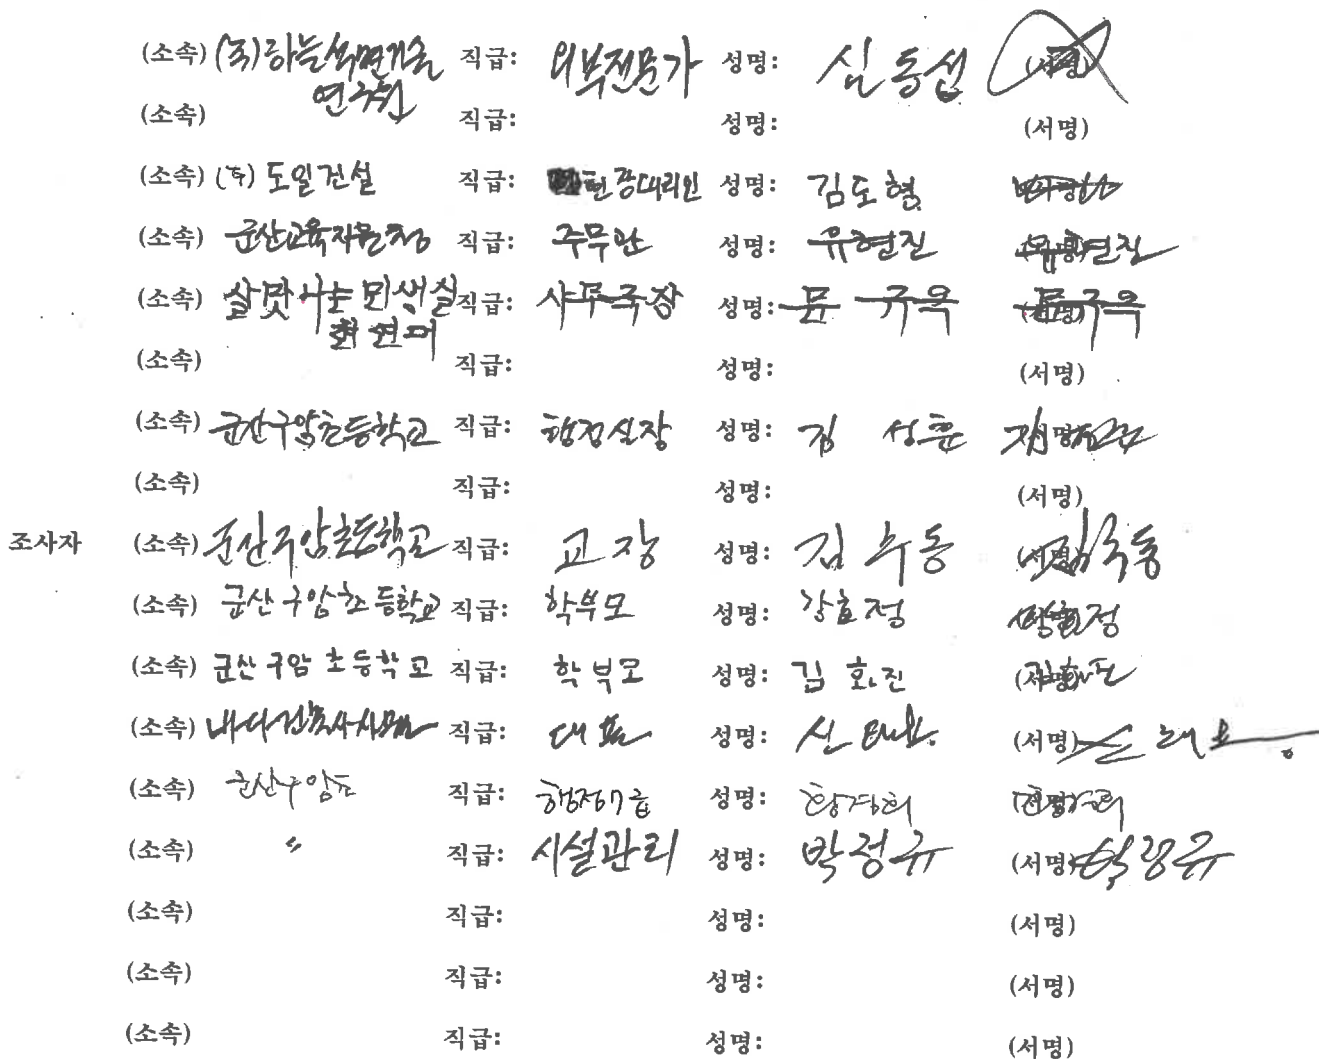 (소속) (주)하늘석면기술 직급: 외부전문가 성명: 심동섭 (서명)
연구원
(소속) 직급: 성명: (서명)
(소속) (주) 도일건설 직급: 현장대리인 성명: 김도형
(소속) 군산교육지원청 직급: 주무관 성명: 유현진 유현진
(소속) 살맛나는 민생실 직급: 사무국장 성명: 문규옥 (서명) 문규옥
현연대
(소속) 직급: 성명: (서명)
(소속) 군산구암초등학교 직급: 행정실장 성명: 김성훈
(소속) 직급: 성명: (서명)
조사자 (소속) 군산구암초등학교 직급: 교장 성명: 김수동 (서명) 김수동
(소속) 군산구암초등학교 직급: 학부모 성명: 강효정 강효정
(소속) 군산구암초등학교 직급: 학부모 성명: 김화진 (서명)
(소속) 직급: 대표 성명: 신태요 (서명) 신태요
(소속) 군산구암초 직급: 행정7급 성명: 황경희
(소속) 〃 직급: 시설관리 성명: 박정규 (서명) 박정규
(소속) 직급: 성명: (서명)
(소속) 직급: 성명: (서명)
(소속) 직급: 성명: (서명)